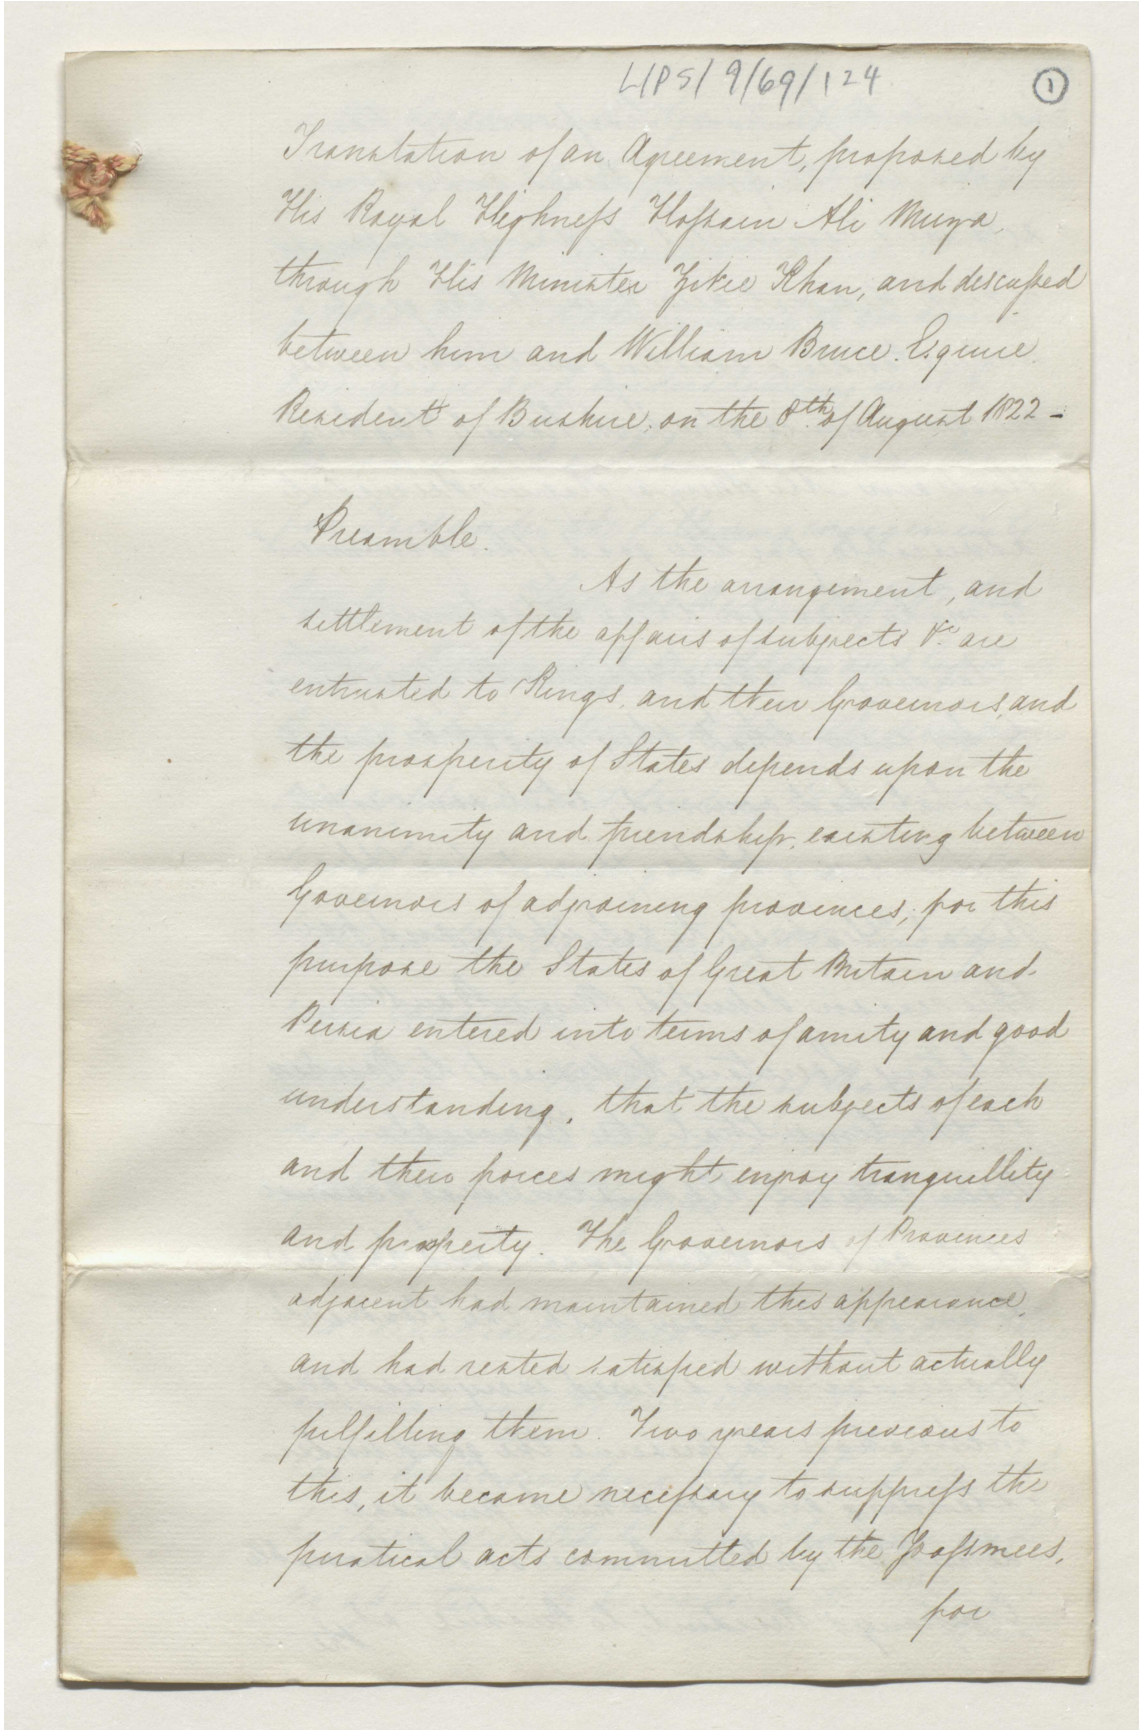 L/PS/9/69/124
1
Translation of an Agreement, proposed by
His Royal Highness Hossain Ali Mirza,
through His Minister Zikie Khan, and discussed
between him and William Bruce. Esquire.
Resident of Bushire, on the 8th of August 1822 -
Preamble.
As the arrangement, and
settlement of the affairs of subjects &c. are
entrusted to Kings, and their Governors, and
the prosperity of States depends upon the
unanimity and friendship, existing between
Governors of adjoining provinces; for this
purpose the States of Great Britain and
Persia entered into terms of amity and good
understanding, that the subjects of each
and their forces might enjoy tranquillity
and prosperity. The Governors of Provinces
adjacent had maintained this appearance,
and had rested satisfied without actually
fulfilling them. Two years previous to
this, it became necessary to suppress the
piratical acts committed by the Joassmees,
for